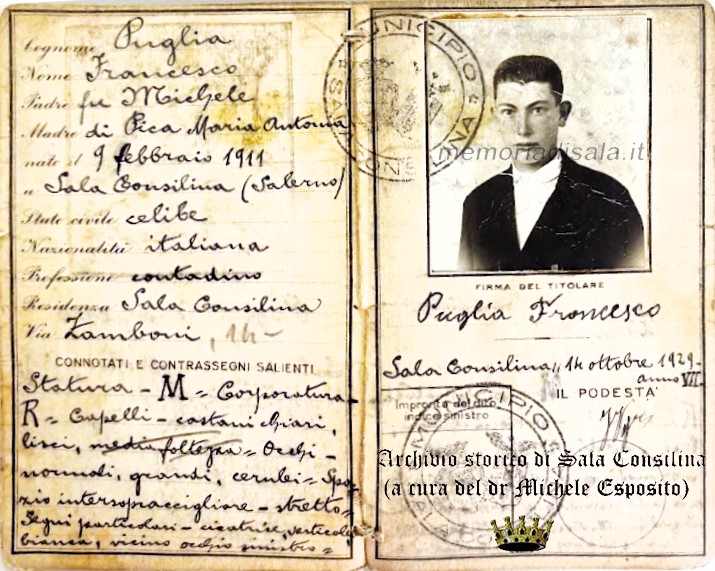 Cognome Puglia
Nome Francesco
Padre fu Michele
Madre di Pica Maria Antonia
nato il 9 febbraio 1911
a Sala Consilina (Salerno)
Stato civile celibe
Nazionalità italiana
Professione contadino
Residenza Sala Consilina
Via Zamboni, 14
CONNOTATI E CONTRASSEGNI SALIENTI
Statura - M = Corporatura -
R = Capelli - castani chiari,
lisci, media foltezza = Occhi -
normali, grandi, cerulei = Spa-
zio intersopraccigliare - stretto =
Segni particolari - cicatrice verticale
bianca, vicino occhio sinistro =
MUNICIPIO
SALA CONSILINA
memoriadisala.it
FIRMA DEL TITOLARE
Puglia Francesco
Sala Consilina, 14 ottobre 1929 -
anno VII
IL PODESTA'
Impronta del dito
indice sinistro
MUNICIPIO
Archivio storico di Sala Consilina
(a cura del dr Michele Esposito)